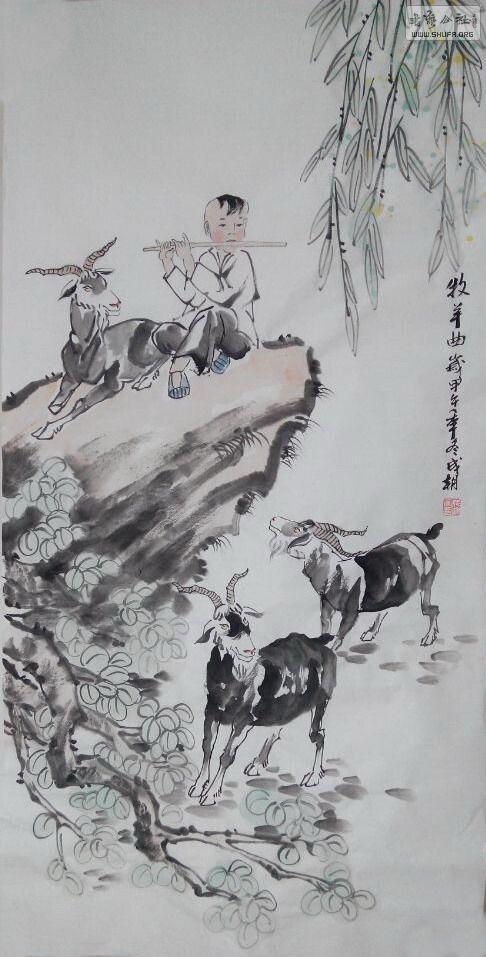 书艺公社
WWW.SHUFA.ORG
牧羊曲歲甲午年冬成朝